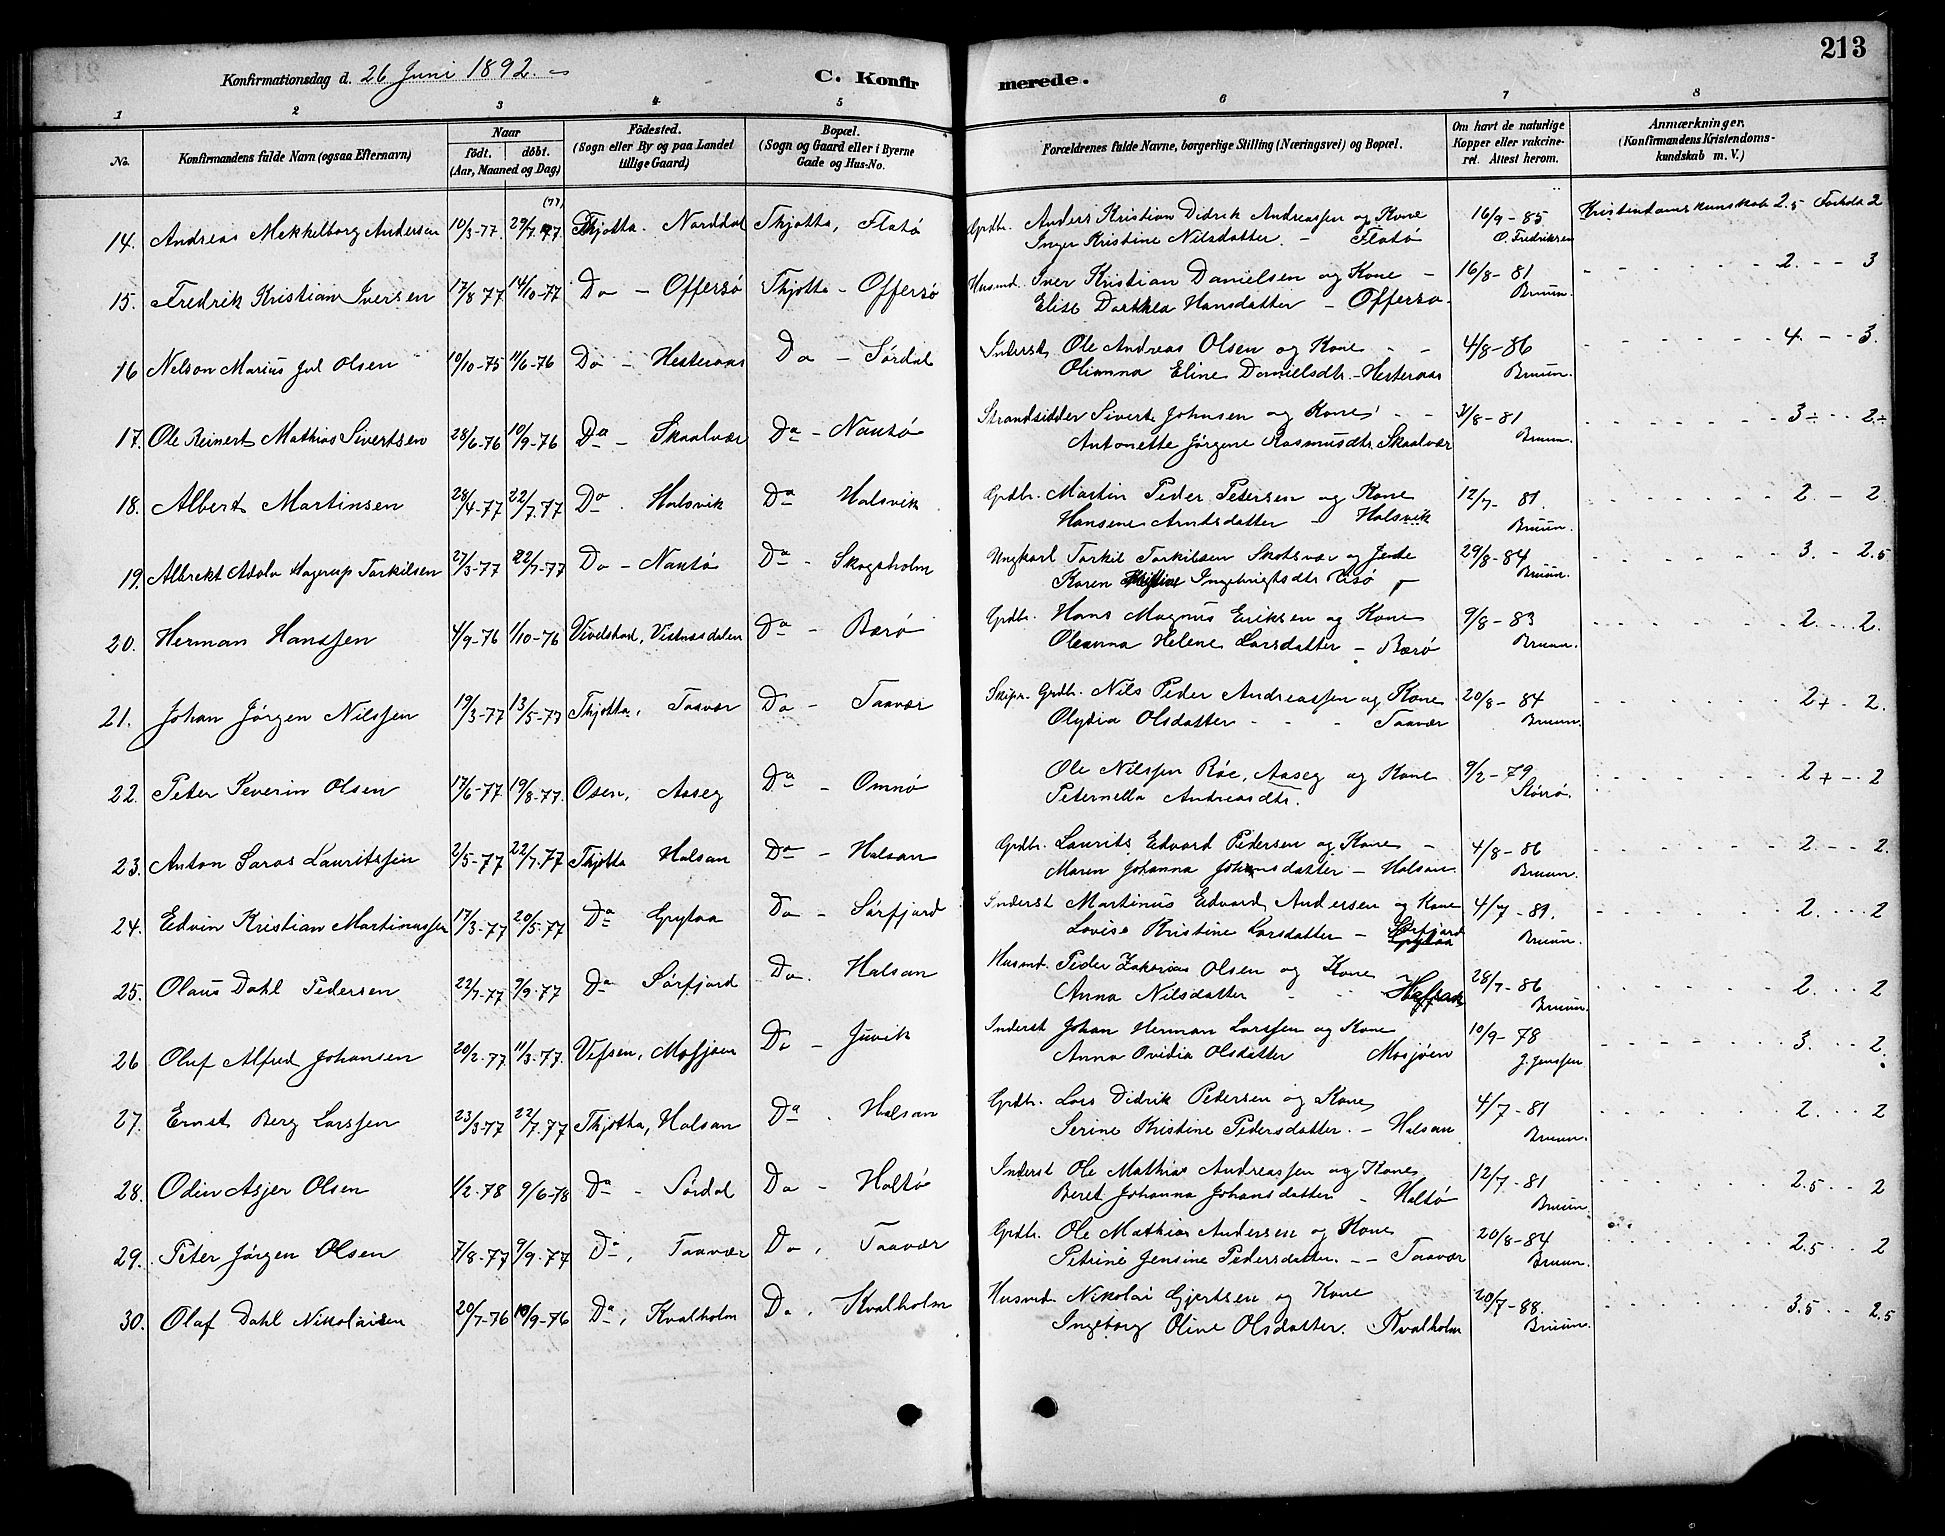 213
Konfirmationsdag d. 26 Juni 1892. C. Konfirmerede.
1 2 3 4 5 6 7 8
No. Konfirmandens fulde Navn (ogsaa Efternavn) Naar födt. döbt. (Aar, Maaned og Dag) Födested. (Sogn eller By og paa Landet tillige Gaard) Bopæl. (Sogn og Gaard eller i Byerne Gade og Hus-No. Forældrenes fulde Navne, borgerlige Stilling (Næringsvei) og Bopæl. Om havt de naturlige Kopper eller vakcineret. Attest herom. Anmærkninger, (Konfirmandens Kristendomskundskab m. V.)
14. Andreas Mekkelborg Andersen 10/3-77 29/7 77 (77) Thjotta. Norddal Thjotta, Flatø Grdbr. Anders Kristian Didrik Andreassen og Kone 16/9-85 Kristendomskunskab 2.5 Forhold 2
Inger Kristine Nilsdatter. - Flatø O. Fredriksen
15. Fredrik Kristian Iversen 17/8 77 14/10-77 Do - Offersø Thjotta - Offersø Husmd. Iver Kristian Danielsen og Kone - 16/8-81 2. 3
Elise Dorthea Hansdatter - Offersø. Bruun.
16 Nelson Marius Jul Olsen 10/10-75 11/6-76 Do - Hesteraas Do - Sørdal Inderst Ole Andreas Olsen og Kone 4/8-86 4. 3.
Olianna Eline Danielsdtr. - Hesteraas Bruun.
17. Ole Reinert Mathias Sivertsen 28/6-76 10/9-76 Do - Skaalvær Do - Nautø Strandsidder Sivert Johnsen og Kone 31/8-81 3÷ 2÷
Antonette Jörgine Rasmusdtr. Skaalvær Bruun.
18. Albert Martinsen 28/4-77 22/7.77 Do. Halsvik Do Halsvik Grdbr. Martin Peder Petersen og Kone 12/7-81. 2. 2.
Hansine Arntsdatter - Halsvik Bruun.
19. Albrekt Adolv Hagerup Torkilsen 27/3-77 22/7-77 Do - Nautø Do - Skogsholm Ungkarl Torkil Torkilsen Skotsvær og Jente 29/8-84 3. 2.5
Karen Kristine Ingebrigtsdtr. Visø Bruun.
20. Herman Hanssen 4/9-76 1/10-76 Vivelstad, Vistnesdalen Do - Barø Grdbr. Hans Magnus Eriksen og Kone 9/8-83 2. 2.
Oleanna Helene Larsdatter - Barø Bruun.
21. Johan Jørgen Nilssen 19/3-77 13/5-77 Thjotta, Taavær Do - Taavær Skipr. Grdbr. Nils Peder Andreassen og Kone 20/8-84 2+ 2.
Olydia Olsdatter - - - Taavær Bruun.
22. Peter Severin Olsen 17/6-77 19/8-77. Osen, Aaseg Do - Omnø Ole Nilssen Röe, Aaseg og Kone 9/2-79 2+ 2
Peternella Andreasdtr.
23. Anton Saros Lauritssen 2/5-77 22/7.77 Thjotta Halsan Do - Halsan Grdbr. Laurits Edvard Pedersen og Kone - 4/8-86 2. 2.
Maren Johanna Johansdatter - Halsan. Bruun.
24. Edvin Kristian Martinussen 17/3-77 20/5-77 Do Grytaa Do - Sørfjord Inderst Martinus Edvard Andersen og Kone 4/7-81. 2. 2
Lovise Kristine Larsdatter - Sørfjord Bruun.
25. Olaus Dahl Pedersen 22/7-77 9/9.77 Do Sørfjord Do. Halsan Husmd. Peder Zakarias Olsen og Kone 28/7-86 2. 2
Anna Nilsdatter - Bruun.
26 Oluf Alfred Johansen 20/2-77 11/3-77. Vefsen, Mosjøen Do - Juvik Inderst Johan Herman Larssen og Kone 10/9-78 3. 2.
Anna Ovidia Olsdatter Mosjøen J. Jenssen
27. Ernst Berg Larssen 23/3-77 22/7.77 Thjotta, Halsan Do. Halsan Grdbr. Lars Didrik Pedersen og Kone 4/7-81 2. 2
Serine Kristine Pedersdatter. - Halsan Bruun.
28. Odin Asjer Olsen 1/2-78 9/6-78 Do - Sørdal Do - Haltø Inderst Ole Mathias Andreassen og Kone 12/7-81 2.5 2
Beret Johanna Johansdatter - Haltø Bruun.
29. Peter Jørgen Olsen 7/8-77 9/9-77 Do, Taavær Do, Taavær Grdbr. Ole Mathias Andersen og Kone 20/8-84 2.5 2
Petrine Jensine Pedersdatter. -- Taavær Bruun.
30. Olaf Dahl Nikolaisen 20/7-76 10/9-76 Do, Kvalholm Do, Kvalholm Husmd. Nikolai Gjertsen og Kone 20/7-88. 3.5 2.5
Ingeborg Oline Olsdatter. Kvalholm Bruun.